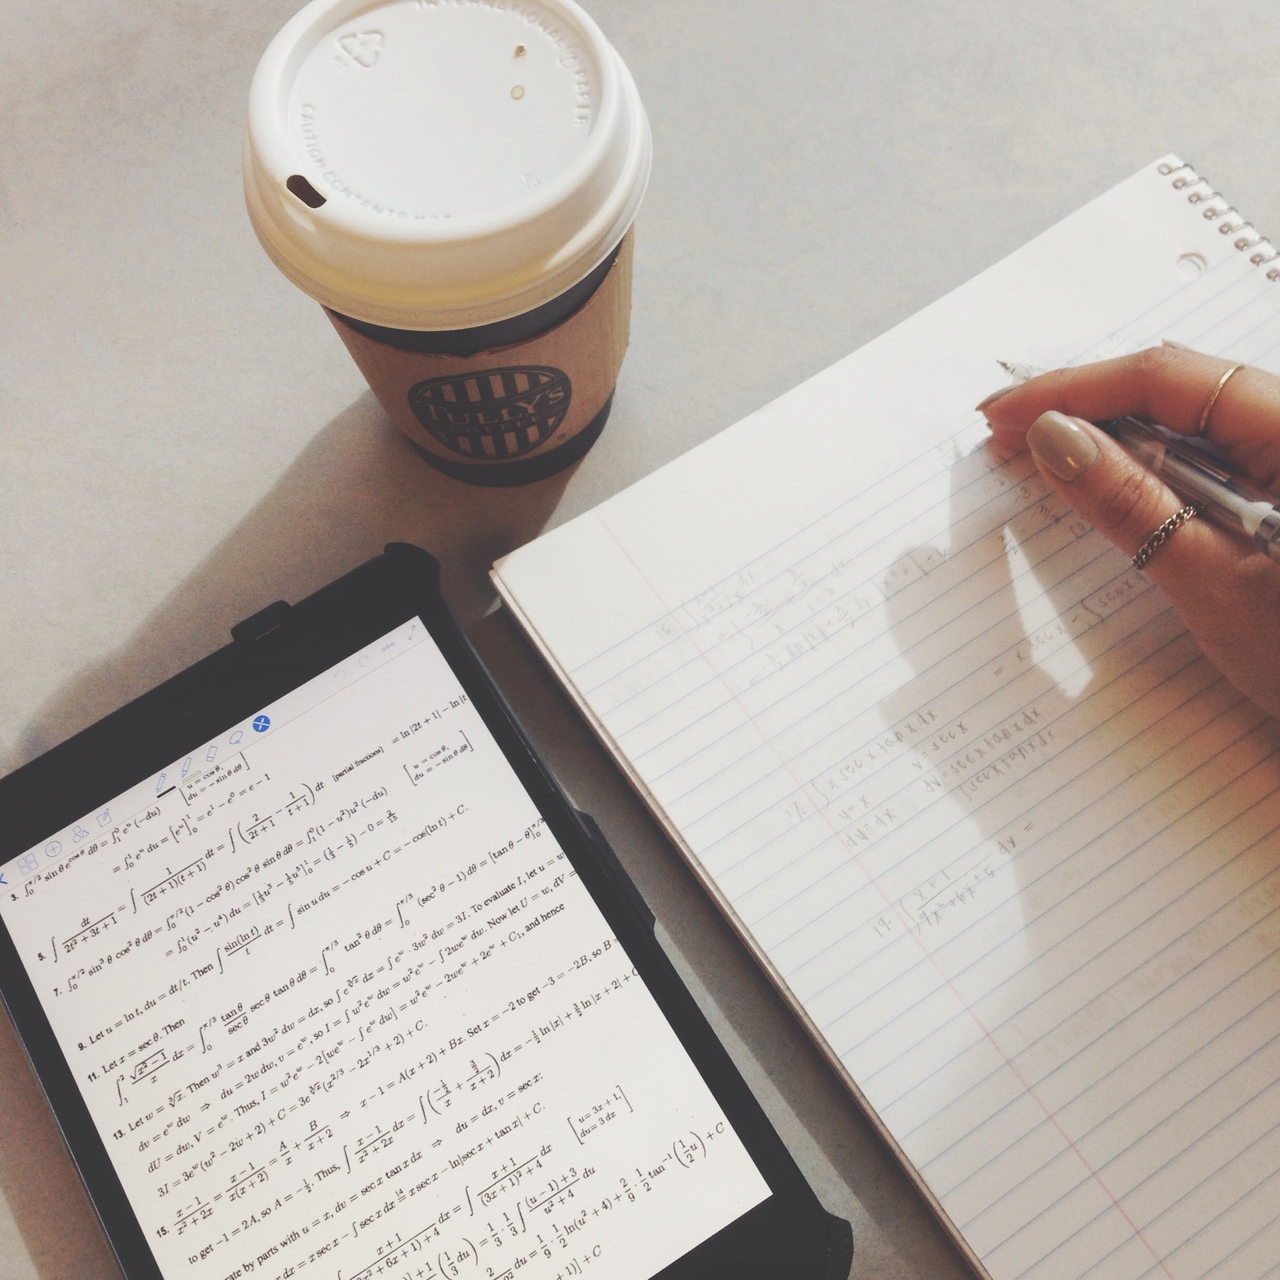 CAUTION CONTENTS HOT
TULLY'S
COFFEE
= ln |2t + 1| − ln |t
[u = cos θ, du = − sin θ dθ]
3. ∫₀^{π/2} sin θ e^{cos θ} dθ = ∫₁⁰ e^u (−du)
= ∫₀¹ e^u du = [e^u]₀¹ = e¹ − e⁰ = e − 1
5. ∫ dt/(2t² + 3t + 1) = ∫ 1/((2t + 1)(t + 1)) dt = ∫ (2/(2t + 1) − 1/(t + 1)) dt [partial fractions]
7. ∫₀^{π/2} sin³ θ cos² θ dθ = ∫₀^{π/2} (1 − cos² θ) cos² θ sin θ dθ = ∫₁⁰ (1 − u²)u² (−du) [u = cos θ, du = − sin θ dθ]
= ∫₀¹ (u² − u⁴) du = [⅓u³ − ⅕u⁵]₀¹ = (⅓ − ⅕) − 0 = 2/15
9. Let u = ln t, du = dt/t. Then ∫ sin(ln t)/t dt = ∫ sin u du = − cos u + C = − cos(ln t) + C.
11. Let x = sec θ. Then
∫₁² √(x² − 1)/x dx = ∫₀^{π/3} tan θ/sec θ sec θ tan θ dθ = ∫₀^{π/3} tan² θ dθ = ∫₀^{π/3} (sec² θ − 1) dθ = [tan θ − θ]₀^{π/3}
13. Let w = ∛x. Then w³ = x and 3w² dw = dx, so ∫ e^{∛x} dx = ∫ e^w · 3w² dw = 3I. To evaluate I, let u = w
dv = e^w dw ⇒ du = 2w dw, v = e^w, so I = ∫ w² e^w dw = w² e^w − ∫ 2we^w dw. Now let U = w, dV =
dU = dw, V = e^w. Thus, I = w² e^w − 2[we^w − ∫ e^w dw] = w² e^w − 2we^w + 2e^w + C₁, and hence
3I = 3e^w (w² − 2w + 2) + C = 3e^{∛x}(x^{2/3} − 2x^{1/3} + 2) + C.
15. (x − 1)/(x² + 2x) = (x − 1)/(x(x + 2)) = A/x + B/(x + 2) ⇒ x − 1 = A(x + 2) + Bx. Set x = −2 to get −3 = −2B, so B =
to get −1 = 2A, so A = −½. Thus, ∫ (x − 1)/(x² + 2x) dx = ∫ (−½/x + 3/2/(x + 2)) dx = −½ ln |x| + 3/2 ln |x + 2| + C
rate by parts with u = x, dv = sec x tan x dx ⇒ du = dx, v = sec x:
dx = x sec x − ∫ sec x dx = x sec x − ln|sec x + tan x| + C.
x + 1/( + 6x + 1) + 4 dx = ∫ (x + 1)/((3x + 1)² + 4) dx [u = 3x + 1, du = 3 dx]
+ 1 (⅓ du) = ⅓ · ⅓ ∫ ((u − 1) + 3)/(u² + 4) du
du = 1/9 · ½ ln(u² + 4) + 2/9 · ½ tan⁻¹ (½u) + C
+ 1)] + C
= x sec x − ∫ sec x
17. ∫ x sec x tan x dx
u = x v = sec x
du = dx dv = sec x tan x dx
∫ sec x tan x dx
19. ∫ (x + 1)/(9x² + 6x + 5) dx =